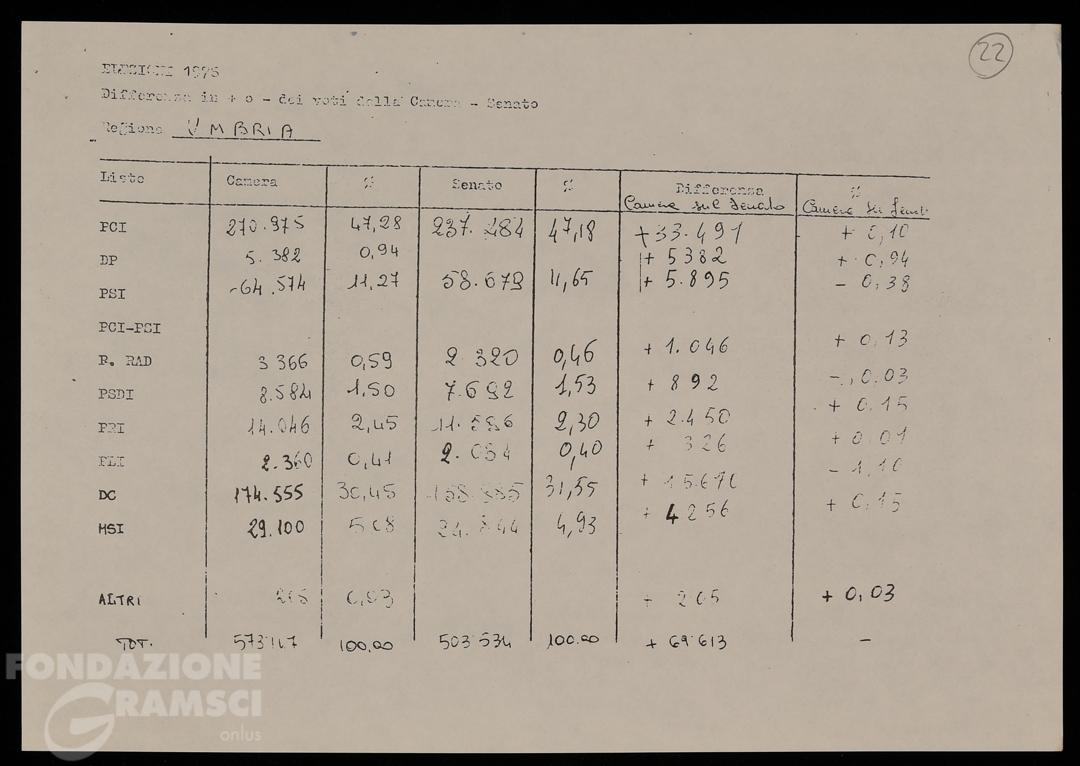 22
ELEZIONI 1976
Differenza in + o - dei voti della Camera - Senato
Regione UMBRIA
Liste Camera % Senato % Differenza Camera sul Senato % Camera su Senato
PCI 270.975 47,28 237.484 47,18 +33.491 + 0,10
DP 5.382 0,94 + 5382 + 0,94
PSI -64.574 11,27 58.679 11,65 + 5.895 - 0,38
PCI-PSI
P. RAD 3 366 0,59 2 320 0,46 + 1.046 + 0,13
PSDI 8.584 1,50 7.692 1,53 + 892 - 0,03
PRI 14.046 2,45 11.596 2,30 + 2.450 + 0,15
PLI 2.360 0,41 2.034 0,40 + 326 + 0,01
DC 174.555 30,45 158.885 31,55 + 15.670 - 1,10
MSI 29.100 5,08 24.844 4,93 + 4256 + 0,15
ALTRI 205 0,03 + 205 + 0,03
TOT. 573147 100,00 503534 100,00 + 69613 -
FONDAZIONE
GRAMSCI
onlus